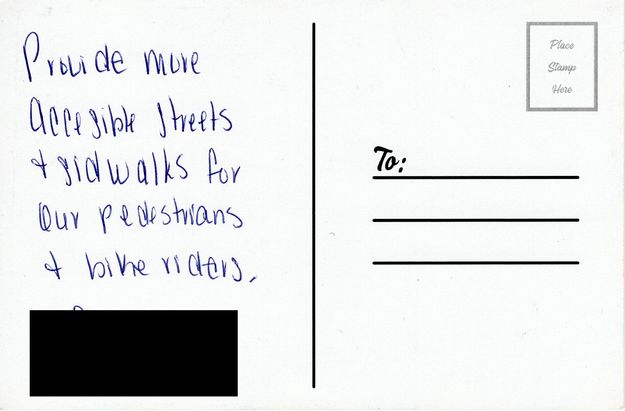 Provide more
Accesible streets
+ sidwalks for
our pedestrians
+ bike riders.
Place
Stamp
Here
To: